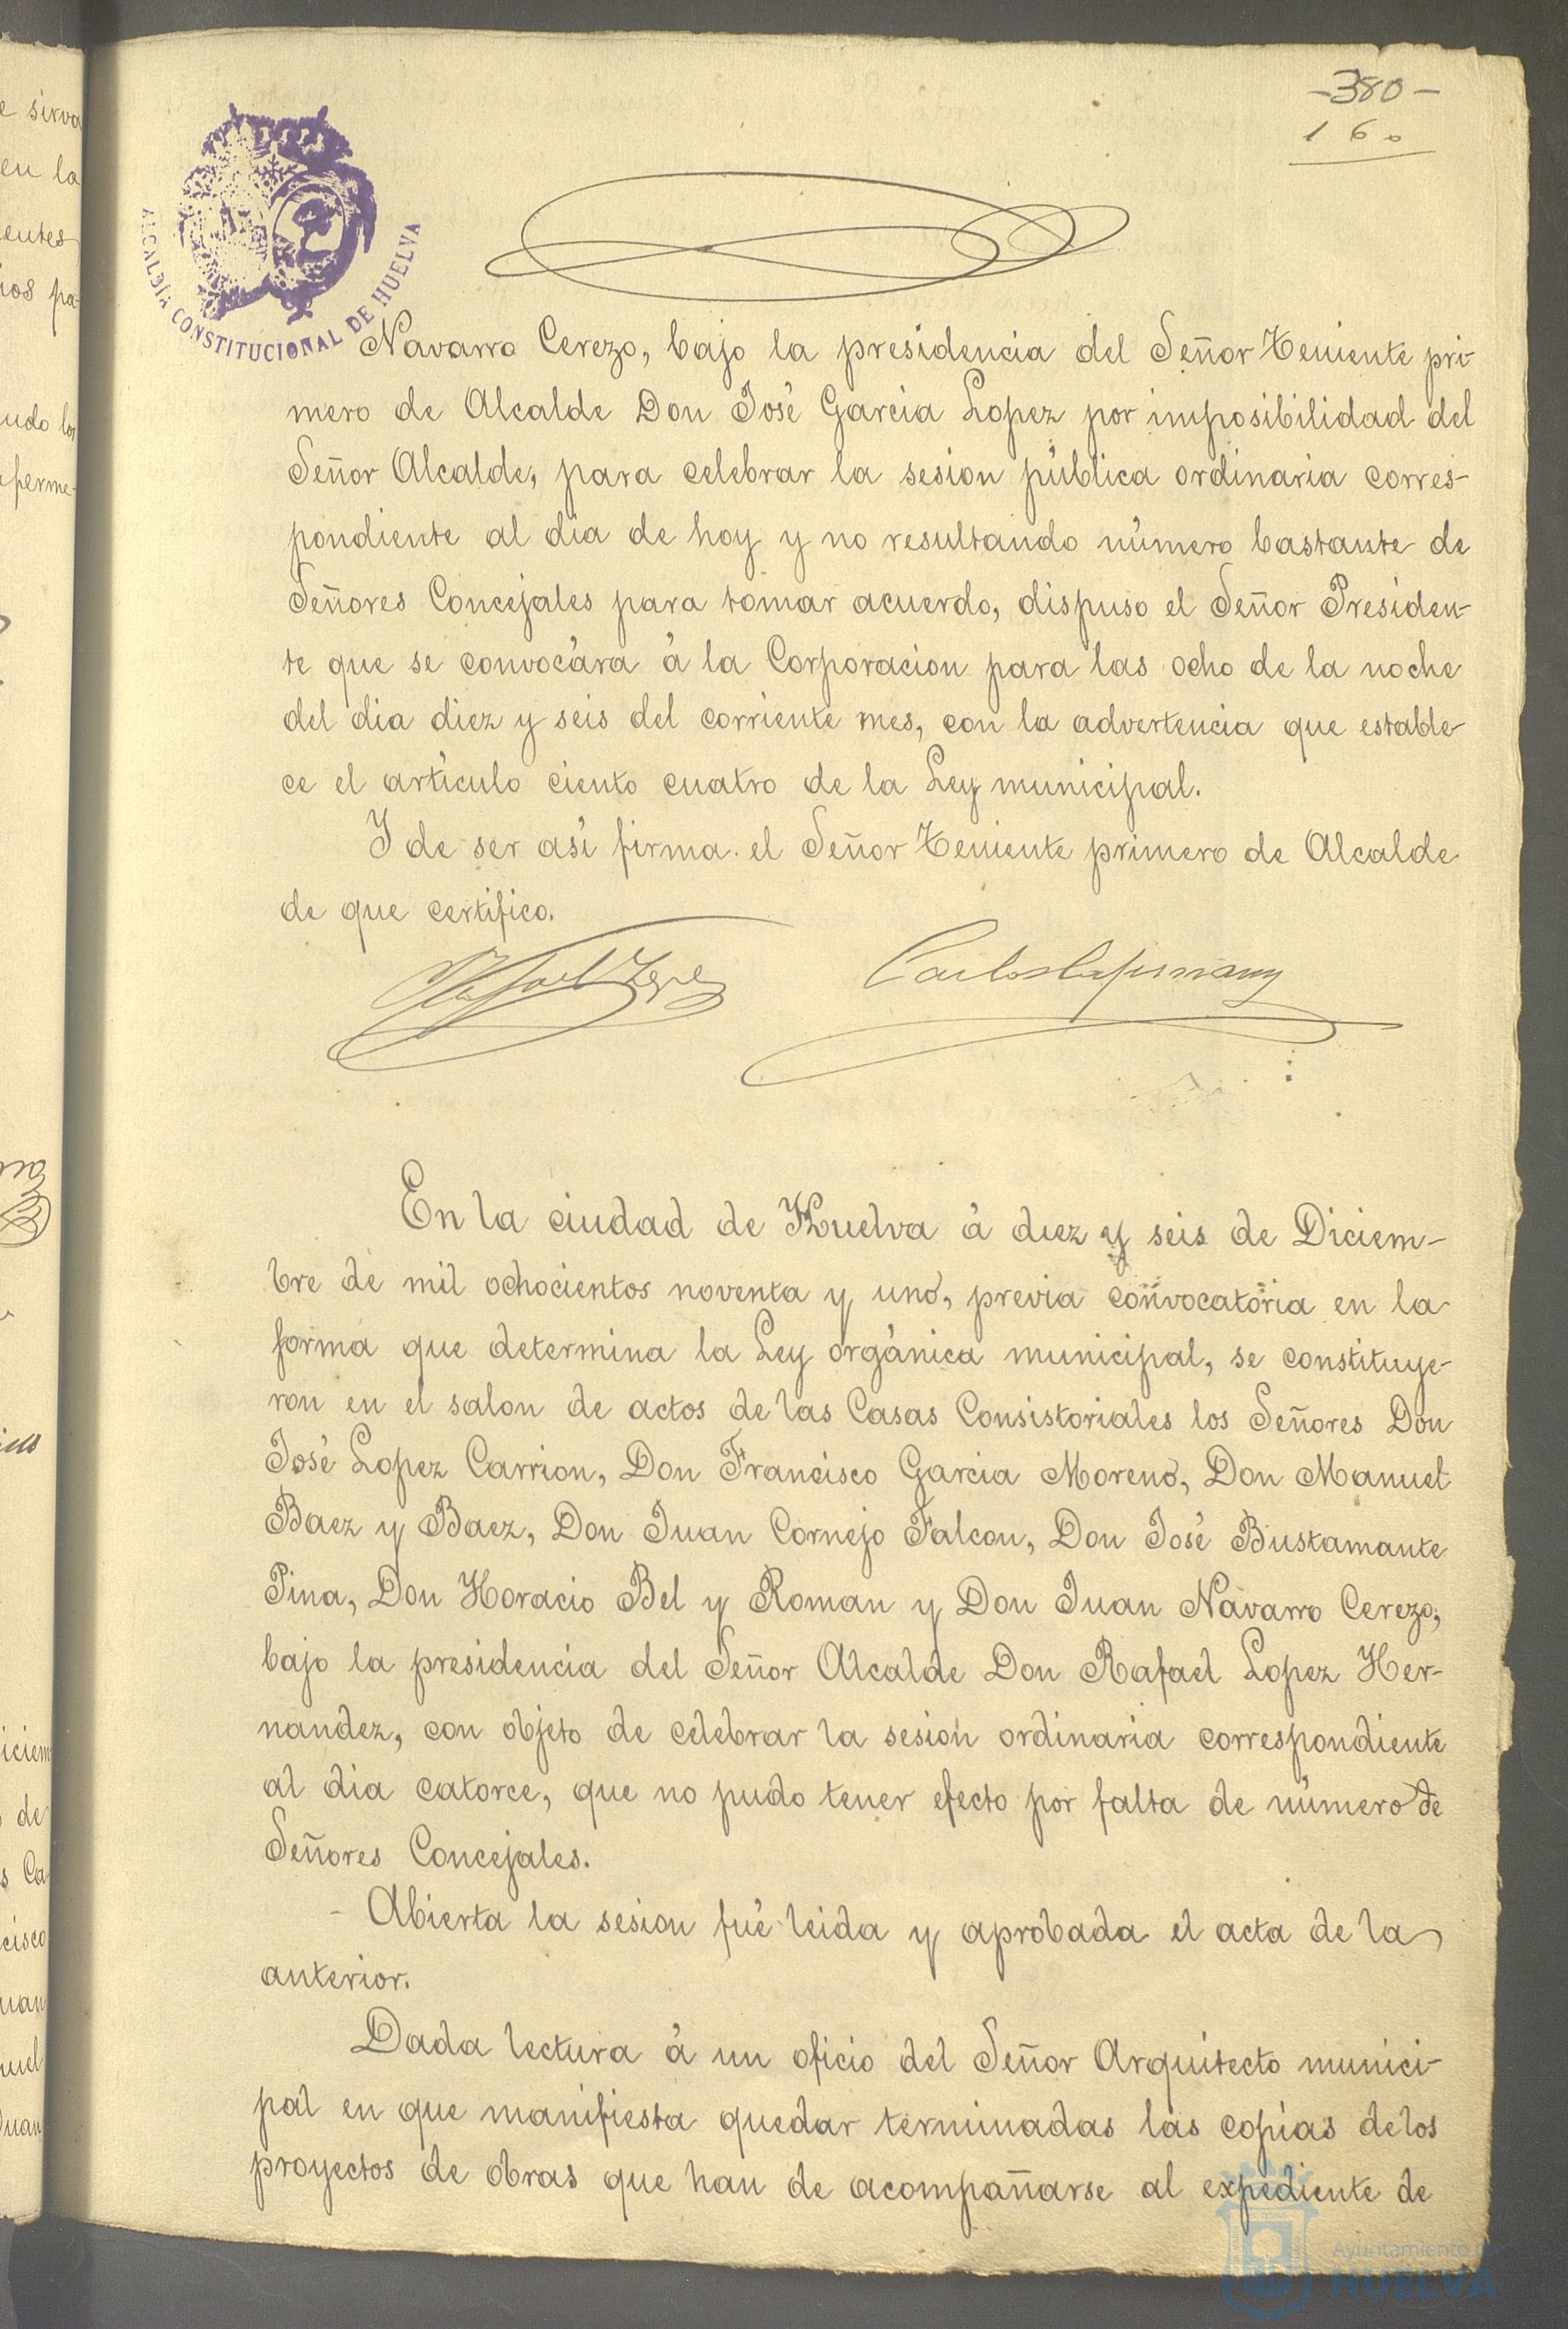 -380-
160
ALCALDÍA CONSTITUCIONAL DE HUELVA
Navarro Cerezo, bajo la presidencia del Señor Teniente pri-
mero de Alcalde Don José Garcia Lopez por imposibilidad del
Señor Alcalde, para celebrar la sesion pública ordinaria corres-
pondiente al dia de hoy y no resultando número bastante de
Señores Concejales para tomar acuerdo, dispuso el Señor Presiden-
te que se convocára á la Corporacion para las ocho de la noche
del dia diez y seis del corriente mes, con la advertencia que estable-
ce el artículo ciento cuatro de la Ley municipal.
Y de ser asi firma el Señor Teniente primero de Alcalde
de que certifico.
En la ciudad de Huelva á diez y seis de Diciem-
bre de mil ochocientos noventa y uno, previa convocatoria en la
forma que determina la Ley orgánica municipal, se constituye-
ron en el salon de actos de las Casas Consistoriales los Señores Don
José Lopez Carrion, Don Francisco Garcia Moreno, Don Manuel
Baez y Baez, Don Juan Cornejo Falcon, Don José Bustamante
Pina, Don Horacio Bel y Roman y Don Juan Navarro Cerezo,
bajo la presidencia del Señor Alcalde Don Rafael Lopez Her-
nandez, con objeto de celebrar la sesion ordinaria correspondiente
al dia catorce, que no pudo tener efecto por falta de número de
Señores Concejales.
Abierta la sesion fué leida y aprobada el acta de la
anterior.
Dada lectura á un oficio del Señor Arquitecto munici-
pal en que manifiesta quedar terminadas las copias de los
proyectos de obras que han de acompañarse al expediente de
Ayuntamiento de
HUELVA